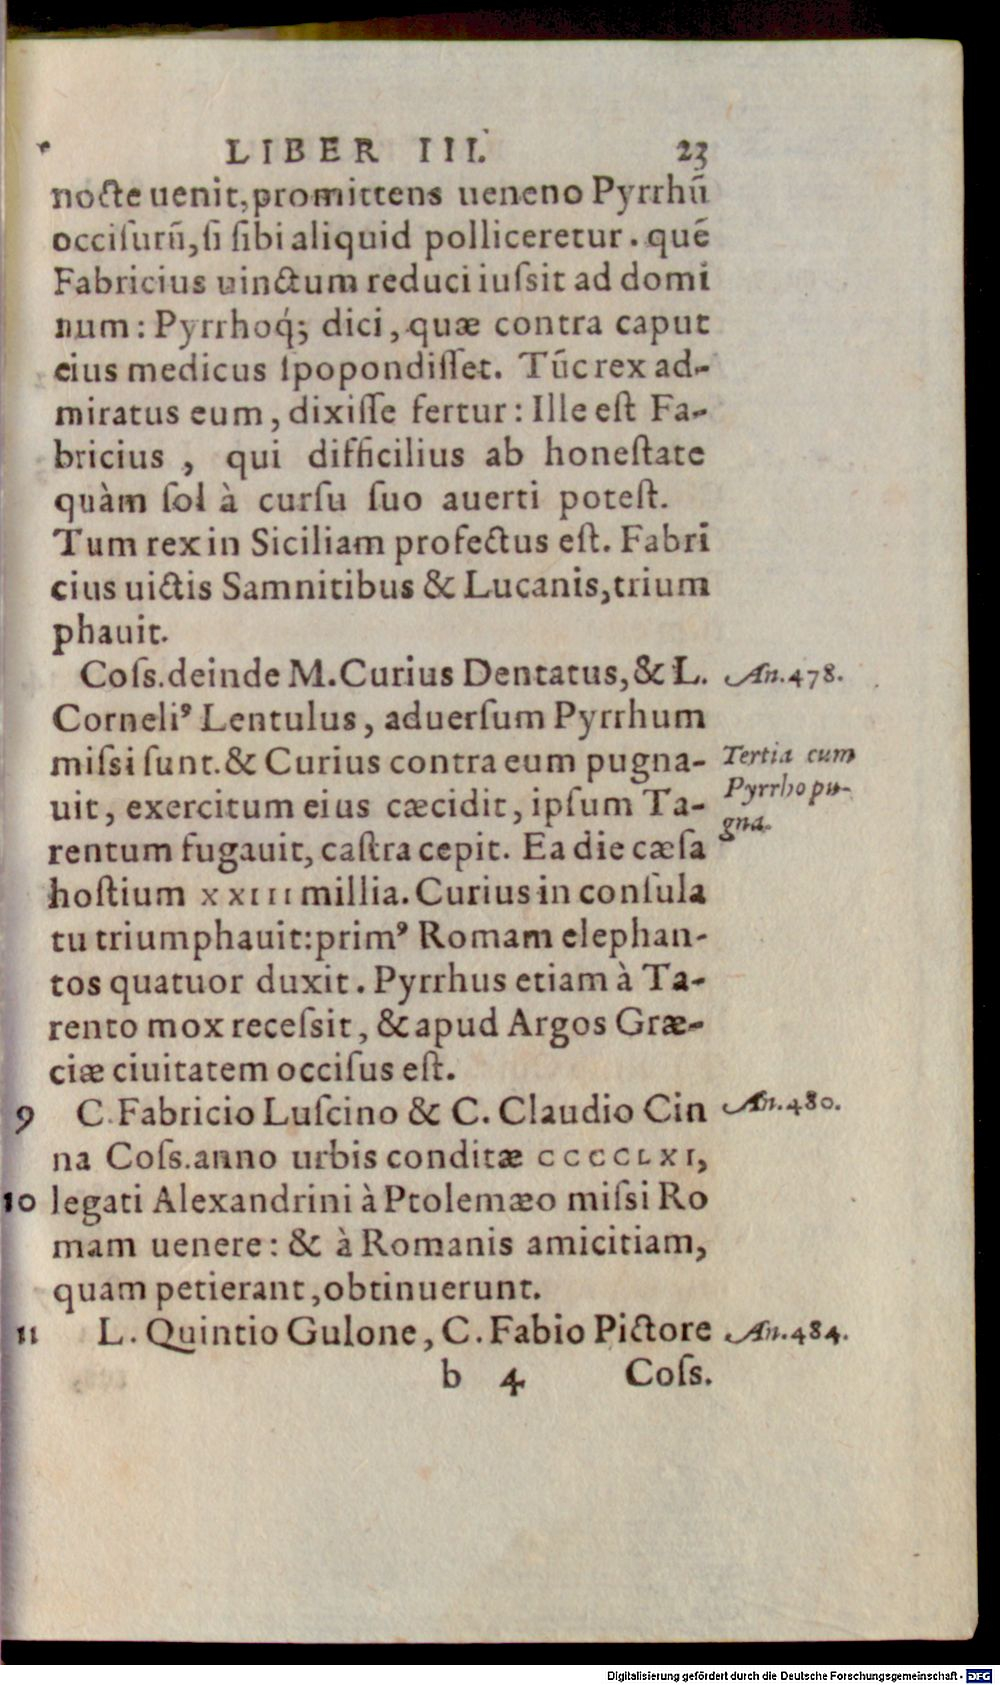 LIBER III. 23
nocte uenit, promittens ueneno Pyrrhū
occiſurū, ſi ſibi aliquid polliceretur. quē
Fabricius uinctum reduci iuſsit ad domi
num: Pyrrhoq́; dici, quæ contra caput
eius medicus ſpopondiſſet. Tūc rex ad-
miratus eum, dixiſſe fertur: Ille eſt Fa-
bricius, qui difficilius ab honeſtate
quàm ſol à curſu ſuo auerti poteſt.
Tum rex in Siciliam profectus eſt. Fabri
cius uictis Samnitibus & Lucanis, trium
phauit.
Coſs. deinde M. Curius Dentatus, & L. An. 478.
Corneliꝰ Lentulus, aduerſum Pyrrhum
miſsi ſunt. & Curius contra eum pugna-
Tertia cum
uit, exercitum eius cæcidit, ipſum Ta-
Pyrrho pu-
rentum fugauit, caſtra cepit. Ea die cæſa
gna.
hoſtium XXIII millia. Curius in conſula
tu triumphauit: primꝰ Romam elephan-
tos quatuor duxit. Pyrrhus etiam à Ta-
rento mox receſsit, & apud Argos Græ-
ciæ ciuitatem occiſus eſt.
9 C. Fabricio Luſcino & C. Claudio Cin An. 480.
na Coſs. anno urbis conditæ CCCCLXI,
10 legati Alexandrini à Ptolemæo miſsi Ro
mam uenere: & à Romanis amicitiam,
quam petierant, obtinuerunt.
11 L. Quintio Gulone, C. Fabio Pictore An. 484.
b 4 Coſs.
Digitalisierung gefördert durch die Deutsche Forschungsgemeinschaft - DFG